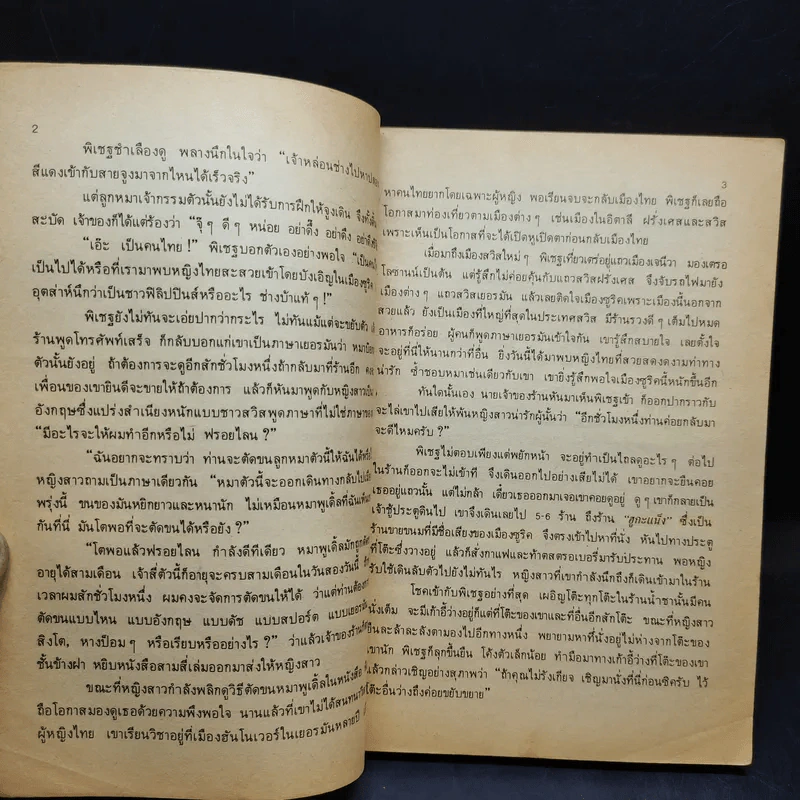 2
พิเชฐชำเลืองดู พลางนึกในใจว่า “เจ้าหล่อนช่างไปหาปลอก
สีแดงเข้ากับสายจูงมาจากไหนได้เร็วจริง”
แต่ลูกหมาเจ้ากรรมตัวนั้นยังไม่ได้รับการฝึกให้จูงเดิน จึงทั้งดิ้น
สะบัด เจ้าของก็ได้แต่ร้องว่า “จุ๊ ๆ ดี ๆ หน่อย อย่าดึ๊ง อย่าดึ๊ง อย่าดึ๊งซิ
“เอ๊ะ เป็นคนไทย !” พิเชฐบอกตัวเองอย่างพอใจ “เป็นคน
เป็นไปได้หรือที่เรามาพบหญิงไทยสะสวยเข้าโดยบังเอิญในเมืองซูริค
อุตส่าห์นึกว่าเป็นชาวฟิลิปปินส์หรืออะไร ช่างบ้าแท้ ๆ !”
พิเชฐยังไม่ทันจะเอ่ยปากว่ากระไร ไม่ทันแม้แต่จะขยับตัว
ร้านพูดโทรศัพท์เสร็จ ก็กลับบอกแก่เขาเป็นภาษาเยอรมันว่า หมา
ตัวนั้นยังอยู่ ถ้าต้องการจะดูอีกสักชั่วโมงหนึ่งถ้ากลับมาที่ร้านอีก
เพื่อนของเขายินดีจะขายให้ถ้าต้องการ แล้วก็หันมาพูดกับหญิงสาวเป็น
อังกฤษซึ่งแปร่งสำเนียงหนักแบบชาวสวิสพูดภาษาที่ไม่ใช่ภาษาของ
“มีอะไรจะให้ผมทำอีกหรือไม่ ฟรอยไลน ?”
“ฉันอยากจะทราบว่า ท่านจะตัดขนลูกหมาตัวนี้ให้ฉันได้หรือ
หญิงสาวถามเป็นภาษาเดียวกัน “หมาตัวนี้จะออกเดินทางกลับไป
พรุ่งนี้ ขนของมันหยิกยาวและหนานัก ไม่เหมือนหมาพูเดิ้ลที่ฉัน
กันที่นี่ มันโตพอที่จะตัดขนได้หรือยัง ?”
“โตพอแล้วฟรอยไลน กำลังดีทีเดียว หมาพูเดิ้ลมักถูก
อายุได้สามเดือน เจ้าสี่ตัวนี้ก็อายุจะครบสามเดือนในวันสองวันนี้
เวลาผมสักชั่วโมงหนึ่ง ผมคงจะจัดการตัดขนให้ได้ ว่าแต่ท่านต้อง
ตัดขนแบบไหน แบบอังกฤษ แบบดัช แบบสปอร์ต แบบเยอรมัน
สิงโต, หางป็อม ๆ หรือเรียบหรืออย่างไร ?” ว่าแล้วเจ้าของร้านก็
ชั้นข้างฝา หยิบหนังสือสามสี่เล่มออกมาส่งให้หญิงสาว
ขณะที่หญิงสาวกำลังพลิกดูวิธีตัดขนหมาพูเดิ้ลในหนังสือ
ถือโอกาสมองดูเธอด้วยความพึงพอใจ นานแล้วที่เขาไม่ได้สนทนากับ
ผู้หญิงไทย เขาเรียนวิชาอยู่ที่เมืองฮันโนเวอร์ในเยอรมันหลายปี
3
หาคนไทยยากโดยเฉพาะผู้หญิง พอเรียนจบจะกลับเมืองไทย พิเชฐก็เลยถือ
โอกาสมาท่องเที่ยวตามเมืองต่าง ๆ เช่นเมืองในอิตาลี ฝรั่งเศสและสวิส
เพราะเห็นเป็นโอกาสที่จะได้เปิดหูเปิดตาก่อนกลับเมืองไทย
เมื่อมาถึงเมืองสวิสใหม่ ๆ พิเชฐเที่ยวเตร่อยู่แถวเมืองเจนีวา มองเตรอ
โลซานน์เป็นต้น แต่รู้สึกไม่ค่อยคุ้นกับแถวสวิสฝรั่งเศส จึงจับรถไฟมายัง
เมืองต่าง ๆ แถวสวิสเยอรมัน แล้วเลยติดใจเมืองซูริคเพราะเมืองนี้นอกจาก
สวยแล้ว ยังเป็นเมืองที่ใหญ่ที่สุดในประเทศสวิส มีร้านรวงดี ๆ เต็มไปหมด
อาหารก็อร่อย ผู้คนก็พูดภาษาเยอรมันเข้าใจกัน เขารู้สึกสบายใจ เลยตั้งใจ
จะอยู่ที่นี่ให้นานกว่าที่อื่น ยิ่งวันนี้ได้มาพบหญิงไทยที่สวยสดงดงามท่าทาง
น่ารัก ซ้ำชอบหมาเช่นเดียวกับเขา เขายิ่งรู้สึกพอใจเมืองซูริคนี้หนักขึ้นอีก
ทันใดนั้นเอง นายเจ้าของร้านหันมาเห็นพิเชฐเข้า ก็ออกปากราวกับ
จะไล่เขาไปเสียให้พ้นหญิงสาวน่ารักผู้นั้นว่า “อีกชั่วโมงหนึ่งท่านค่อยกลับมา
จะดีไหมครับ ?”
พิเชฐไม่ตอบเพียงแต่พยักหน้า จะอยู่ทำเป็นไถลดูอะไร ๆ ต่อไป
ในร้านก็ออกจะไม่เข้าที จึงเดินออกไปอย่างเสียไม่ได้ เขาอยากจะยืนคอย
เธออยู่แถวนั้น แต่ไม่กล้า เดี๋ยวเธอออกมาเจอเขาคอยดูอยู่ ดู ๆ เขาก็กลายเป็น
เจ้าชู้ประตูดินไป เขาจึงเดินเลยไป 5-6 ร้าน ถึงร้าน “ฮูกะแน็ง” ซึ่งเป็น
ร้านขายขนมที่มีชื่อเสียงของเมืองซูริค จึงตรงเข้าไปหาที่นั่ง หันไปทางประตู
ที่โต๊ะซึ่งวางอยู่ แล้วก็สั่งกาแฟและท้าตสตรอเบอรี่มารับประทาน พอหญิง
รับใช้เดินลับตัวไปยังไม่ทันไร หญิงสาวที่เขากำลังนึกถึงก็เดินเข้ามาในร้าน
โชคเข้ากับพิเชฐอย่างที่สุด เผอิญโต๊ะทุกโต๊ะในร้านน้ำชานั้นมีคน
นั่งเต็ม จะมีเก้าอี้ว่างอยู่ก็แต่ที่โต๊ะของเขาและที่อื่นอีกสักโต๊ะ ขณะที่หญิงสาว
ยืนละล้าละลังตามองไปอีกทางหนึ่ง พยายามหาที่นั่งอยู่ไม่ห่างจากโต๊ะของ
เขานัก พิเชฐก็ลุกขึ้นยืน โค้งตัวเล็กน้อย ทำมือมาทางเก้าอี้ว่างที่โต๊ะของเขา
แล้วกล่าวเชิญอย่างสุภาพว่า “ถ้าคุณไม่รังเกียจ เชิญมานั่งที่นี่ก่อนซิครับ ไว้
โต๊ะอื่นว่างถึงค่อยขยับขยาย”